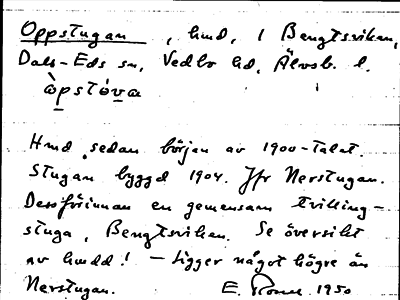 Oppstugan, hmd, i Bengtsviken,
Dals-Eds sn, Vedbo hd, Älvsb. l.
å̀pstúva
Hmd sedan början av 1900-talet.
Stugan byggd 1904. Jfr Nerstugan.
Dessförinnan en gemensam tvilling-
stuga, Bengtsviken. Se översikt
av hmdd! – Ligger något högre än
Nerstugan. E. 1950